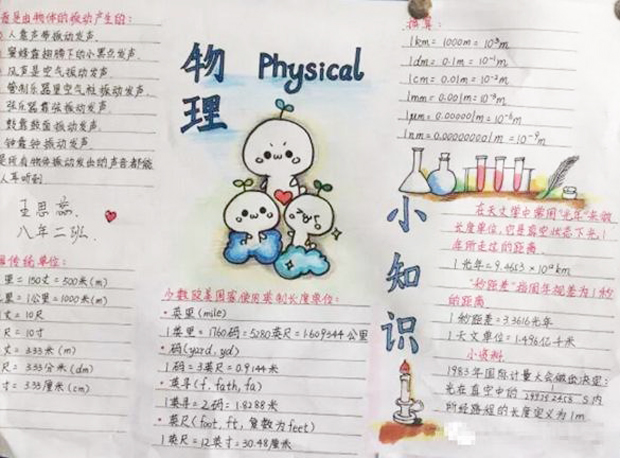 音是由物体的振动产生的:
人靠声带振动发声.
蜜蜂靠翅膀下的小黑点发声.
风声是空气振动发声.
管制乐器是空气柱振动发声.
弦乐器靠弦振动发声.
鼓靠鼓面振动发声.
钟靠钟振动发声.
是所有物体振动发出的声音都能
人耳听到
王思蕊.
八年二班.
传统单位:
里=150丈=500米(m)
里=1公里=1000米(m)
丈=10尺
尺=10寸
丈=3.33米(m)
尺=3.33分米(dm)
寸=3.33厘米(cm)
物理
Physical
小知识
少数欧美国家使用英制长度单位:
• 英里(mile)
1英里=1760码=5280英尺=1.609344公里
• 码(yard, yd)
1码=3英尺=0.9144米
• 英寻(f, fath, fa)
1英寻=2码=1.8288米
• 英尺(foot, ft, 复数为feet)
1英尺=12英寸=30.48厘米
换算:
1km=1000m=10³m
1dm=0.1m=10⁻¹m
1cm=0.01m=10⁻²m
1mm=0.001m=10⁻³m
1μm=0.000001m=10⁻⁶m
1nm=0.000000001m=10⁻⁹m
在天文学中常用"光年"来做
长度单位,它是真空状态下光1
年所走过的距离.
1光年=9.4653×10¹²km
"秒距差"指周年视差为1秒
的距离
1秒距差=3.3616光年
1天文单位=1.496亿千米
小资料
1983年国际计量大会做出决定:
光在真空中的1/299792458 s内
所经路短的长度定义为1m